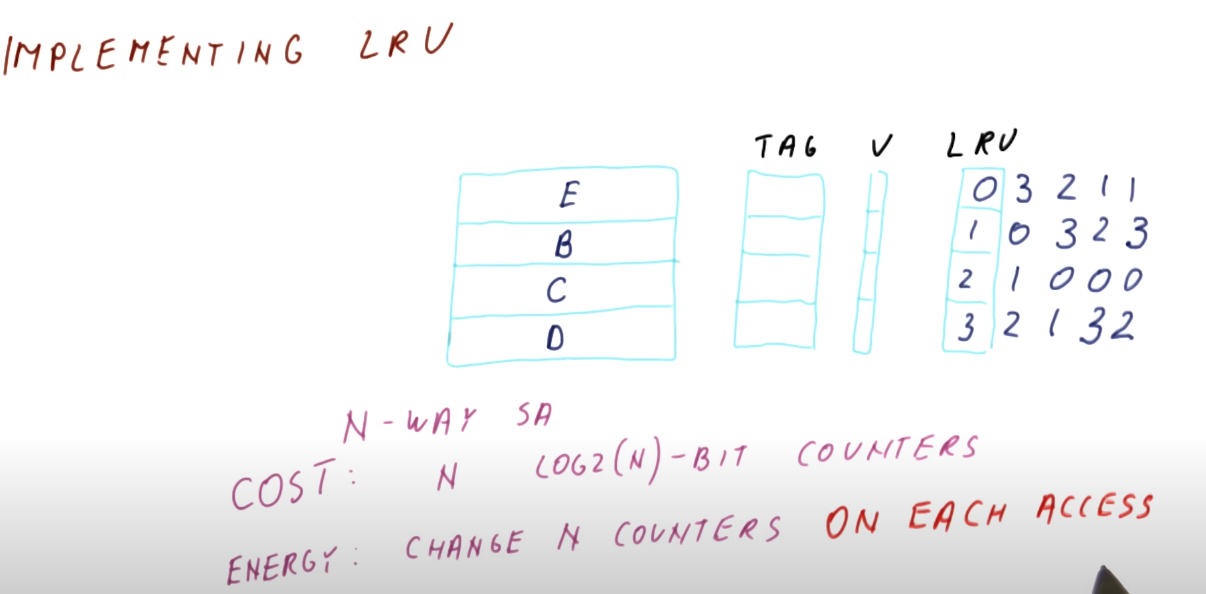 IMPLEMENTING LRU
TAG V LRU
E 0 3 2 1 1
B 1 0 3 2 3
C 2 1 0 0 0
D 3 2 1 3 2
N-WAY SA
COST: N LOG2(N)-BIT COUNTERS
ENERGY: CHANGE N COUNTERS ON EACH ACCESS